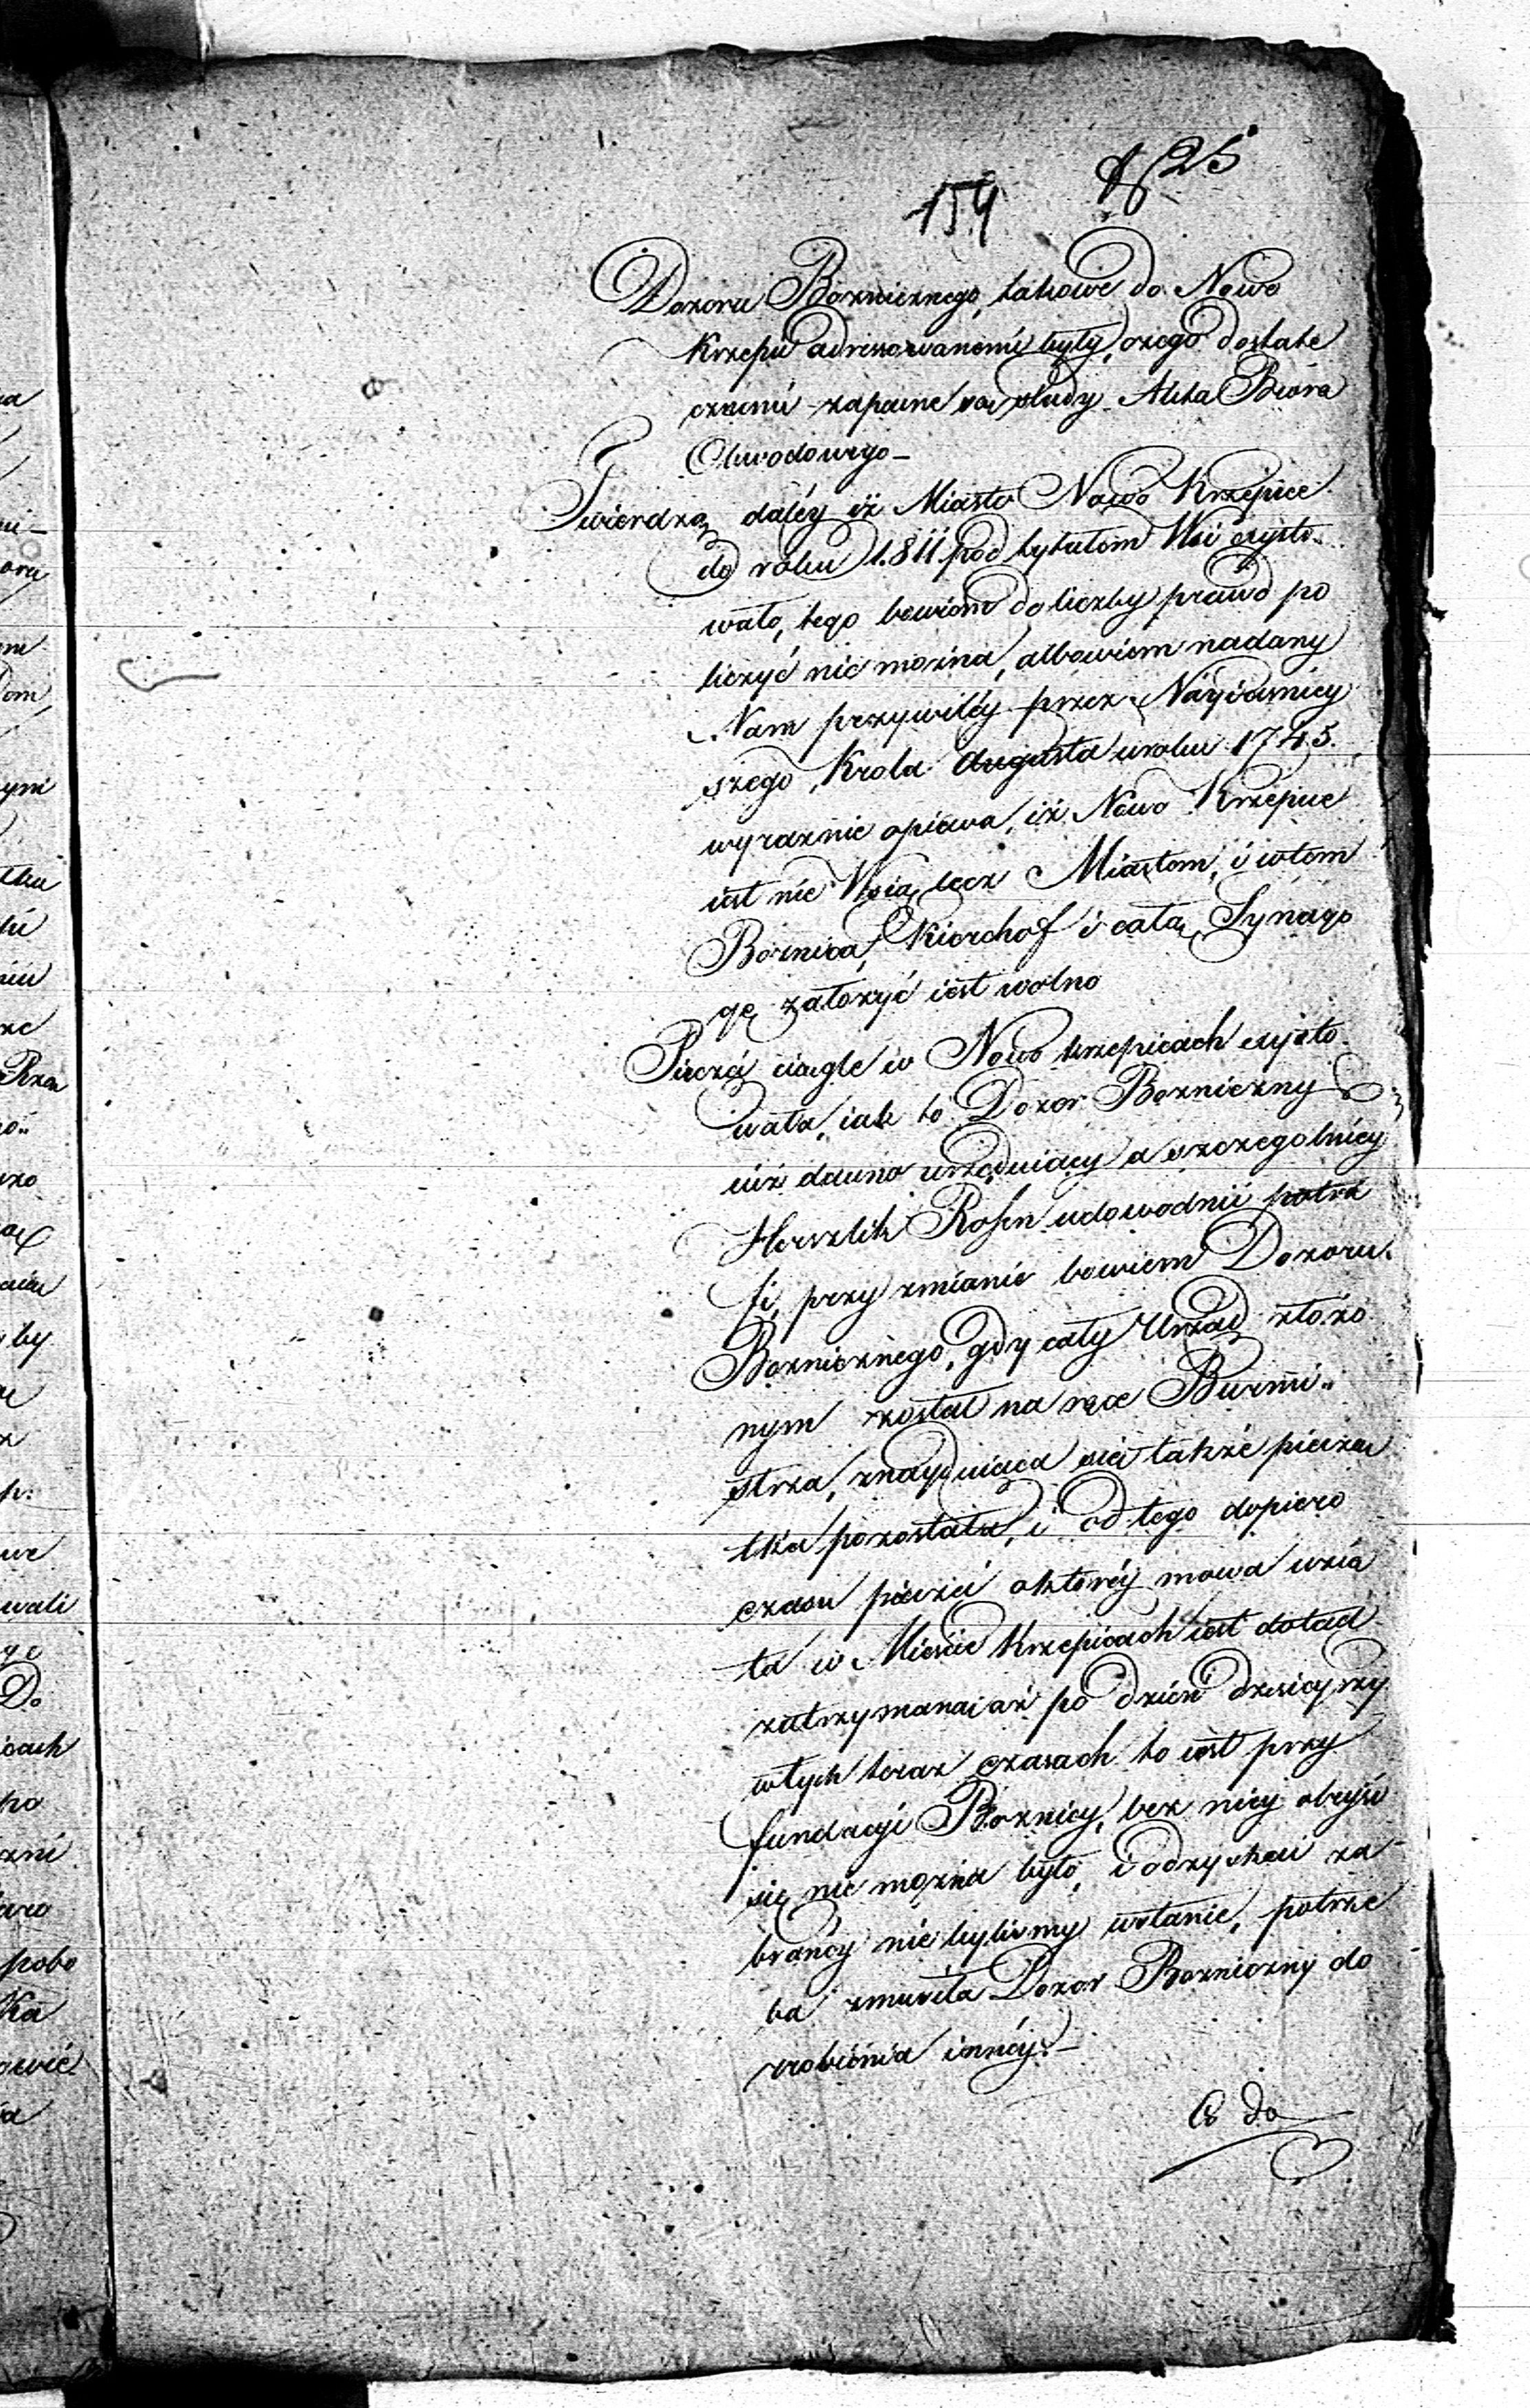 154
25
Dozoru Boznicznego, takowe do Nowo
Krzepic adressowanemi były, czego dostate
cznemi zapewne są ślady Akta Biora
Obwodowego –
Twierdzą daléy iż Miasto Nowo Krzepice
do roku 1.811 pod tytułem Wsi exysto„
wało, tego bowiem do liczby prawd po
liczyć nie można, albowiem nadany
Nam przywiléy przez Nayiasniey
szego Krola Augusta w roku 1745.
wyraznie opiewa, iż Nowo Krzepice
iest nie Wsią lecz Miastem, i w tem
Boznica, Kierchof i całą Synago
gę załozyć iest wolno
Pieczęć ciągle w Nowo Krzepicach exysto
wała, iak to Dozor Bozniczny
iuż dawno urzęduiący a szczegolniey
Herszlik Rosen udowodnić potra
fi, przy zmianie bowiem Dozoru
Boznicznego, gdy cały Urząd złozo
nym został na ręce Burmi„
strza, znayduiąca się także pieczą
tka pozostała, i od tego dopiero
czasu pieczęć o któréy mowa wzię
ta w Miescie Krzepicach iest dotąd
zatrzymana; aż po dzień dzisieyszy
w tych teraz czasach to iest przy
fundacyi Boznicy, bez niey obeyść
się nie można było, i odzyskać za
braney nie bylismy wstanie, potrze
ba zmusiła Dozor Bozniczny do
zrobienia innéy. –
Co do